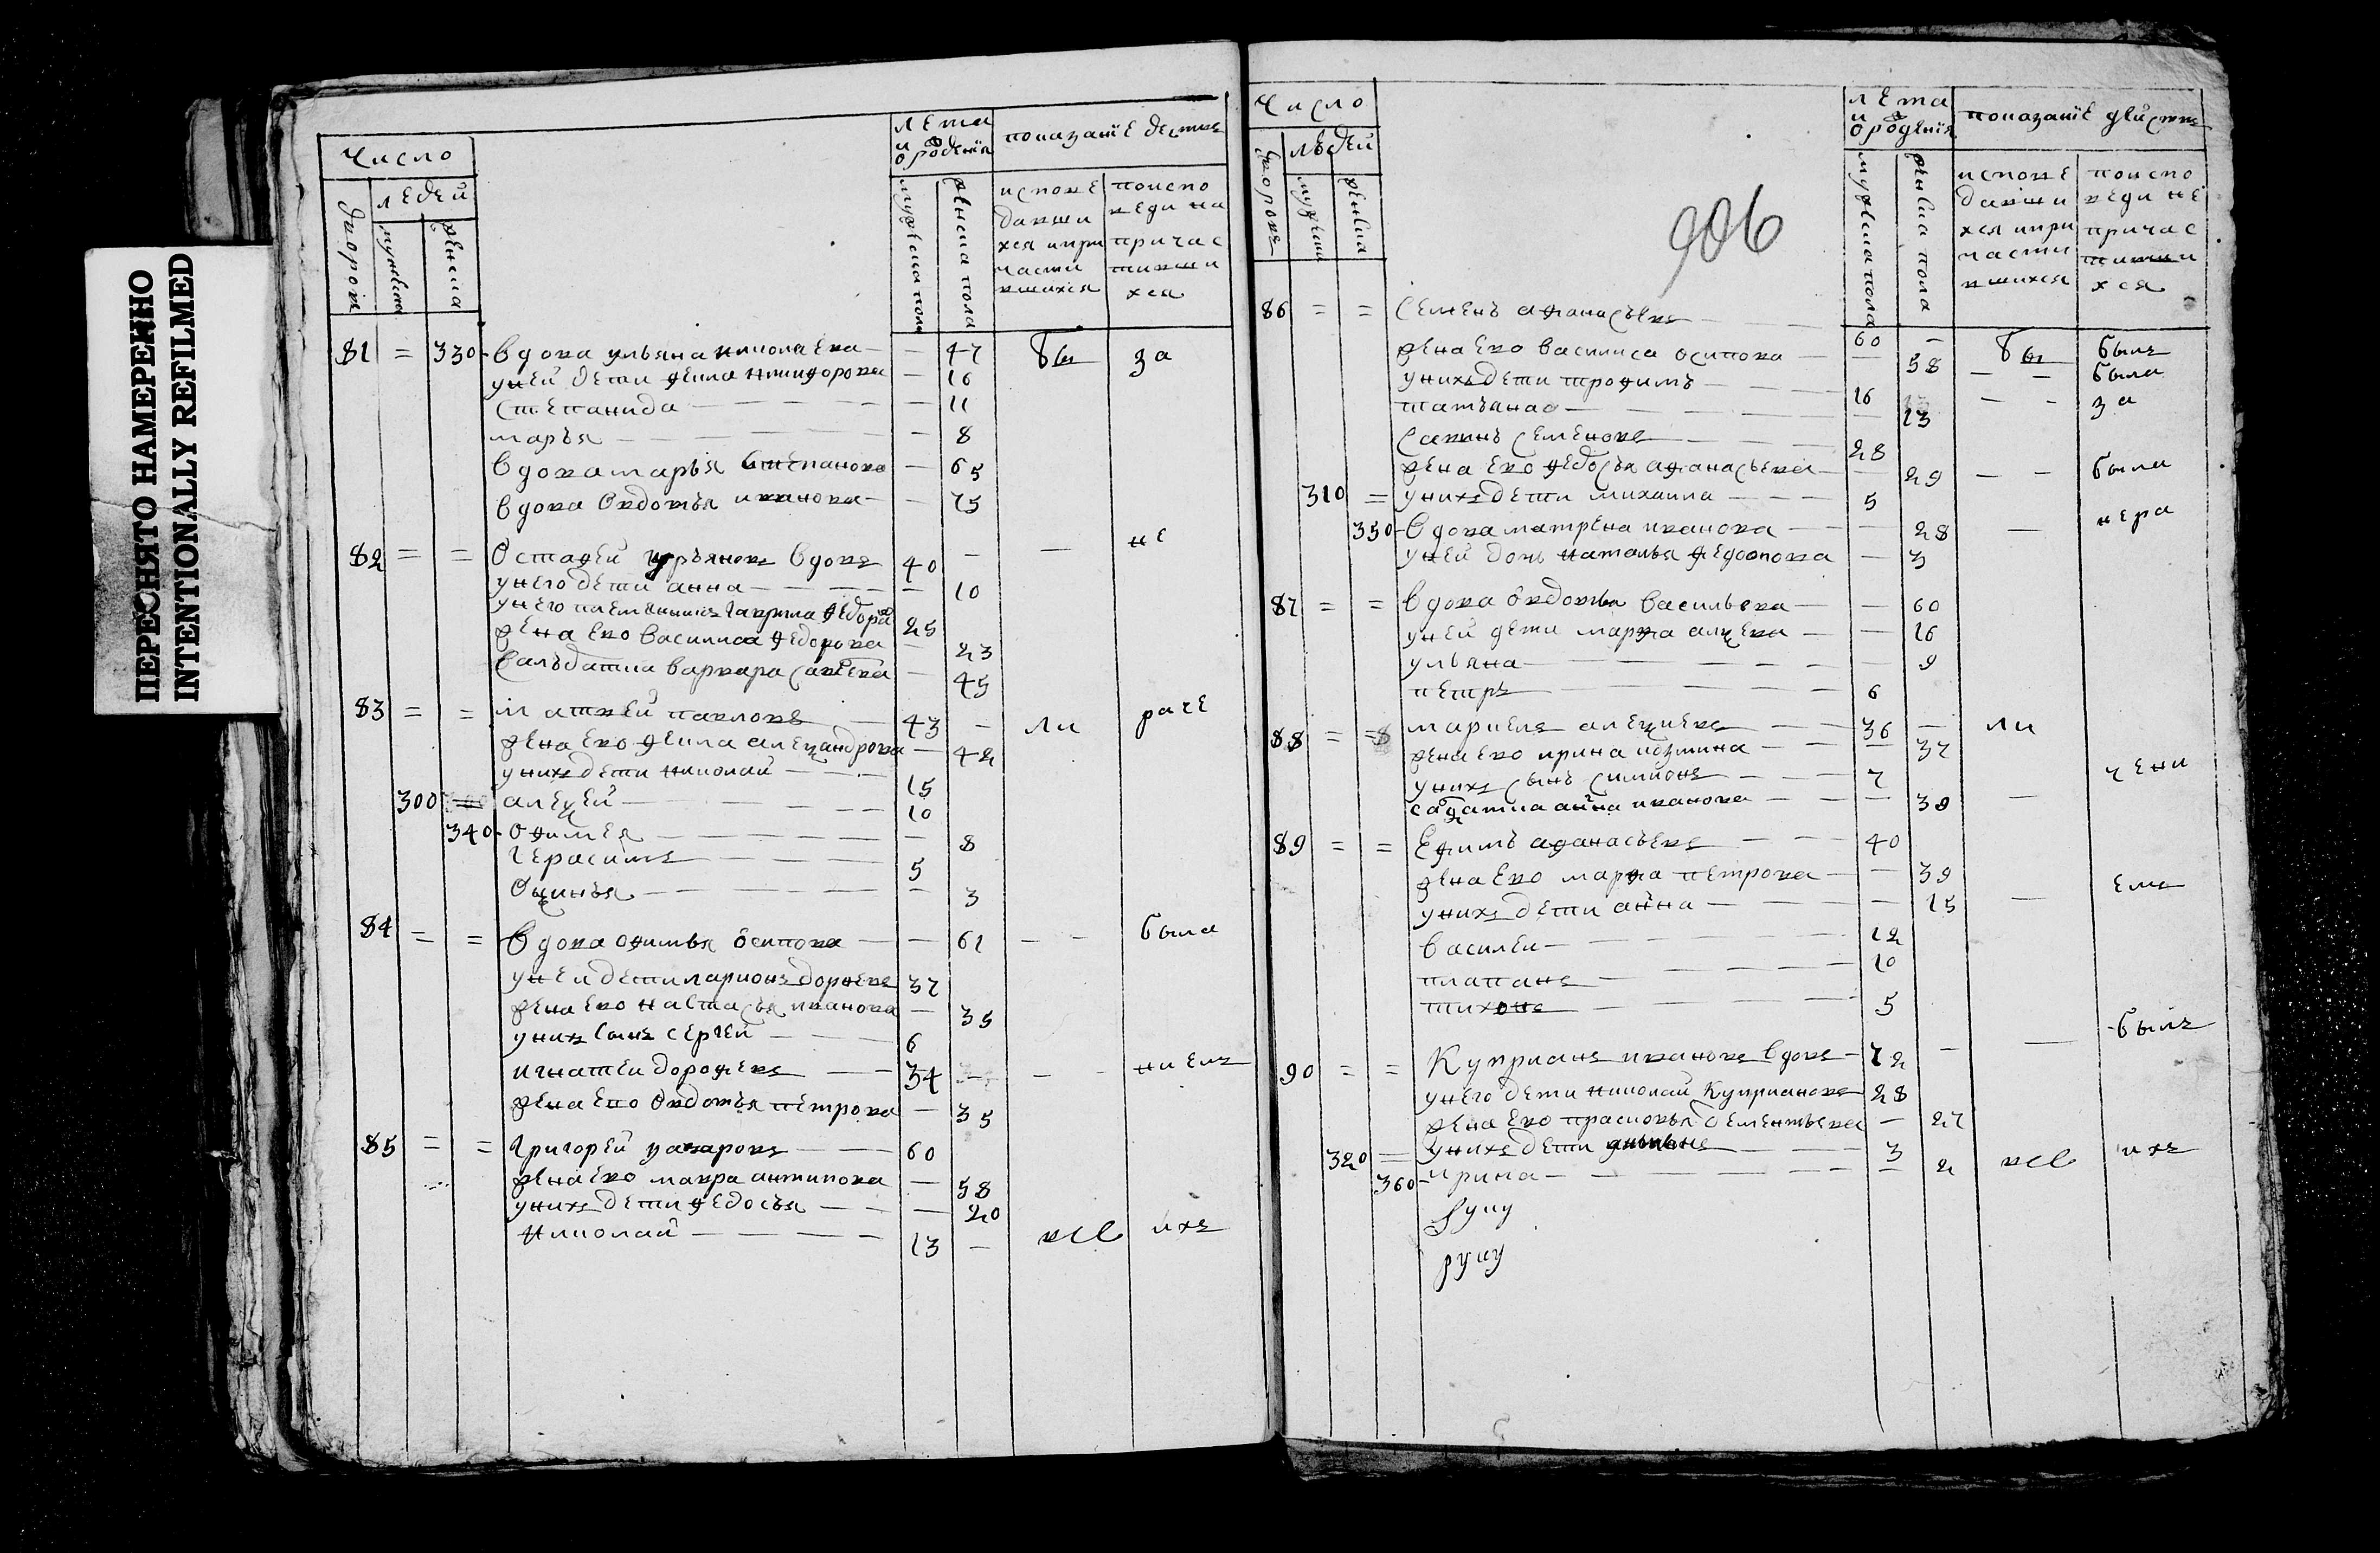 ПЕРЕСНЯТО НАМЕРЕННО
INTENTIONALLY REFILMED
Число
людей
дворовъ
мужеска
женска
лѣта
и
ѿ рожденїя
мужеска пола
женска пола
показанїе
испове
давши
хся и при
части
вшихся
по испо
веди не
причас
тивши
хся
81 = 330 вдова ульяна николаева — 47 бы за
у ней дети фекла никифорова — 16
степанида — 11
марья — 8
вдова марья степанова — 65
вдова овдотья иванова — 75
82 = = Остафей вдовъ 40 — — не
у него дети анна — 10
у него племянникъ гаврила федоровъ 25
жена ево василиса федорова — 23
салъдатка варвара савеева — 45
83 = = Матвей павловъ 43 — ли раче
жена ево фекла алеѯандрова — 42
у нихъ дети николай 15
300 алеѯей 10
340 офимея — 8
герасимъ 5
оѯинья — 3
84 = = вдова офимья осипова — 61 — — была
у ней дети ларионъ дорфевъ 37
жена ево настасья иванова — 35
у нихъ сынъ сергей 6
игнатей дорофевъ 34 — — — ни емъ
жена ево овдотья петрова — 35
85 = = Григорей 60
жена ево мавра антипова — 58
у нихъ дети федосья — 20
николай 13 — все ихъ
Число
людей
дворовъ
мужеска
женска
лета
и
ѿ рожденїя
мужеска пола
женска пола
показанїе действъ
испове
давши
хся и при
части
вшихся
по испо
веди не
причас
тивши
хся
906
86 = = Семенъ афанасьевъ 60 — бы былъ
жена ево василиса осипова — 58 — — была
у нихъ дети трофимъ 16 — — за
татьяна — 13
савинъ семеновъ 28
жена ево федосья афанасьева — 29 — — была
310 = у нихъ дети михаила 5
350 вдова матрена иванова — 28 — нера
у ней дочь наталья — 3
87 = = вдова овдотья васильева — 60
у ней дети марфа алѯева — 16
ульяна — 9
петръ 6
88 = = маркелъ алеѯиевъ 36 — ли
жена ево ирина козмина — 37
у нихъ сынъ симионъ 7 чени
садатка анна иванова — 38 —
89 = = Ефимъ афанасьевъ 40
жена ево марфа петрова — 39
у нихъ дети анна — 15 — емъ
василей 12
платанъ 10
тихонъ 5
90 = = Куприанъ ивановъ вдовъ 72 — — былъ
у него дети николай куприановъ 28
жена ево прасковья дементьева — 27
320 = у нихъ дети 3
360 ирина — 2 все ихъ
руку